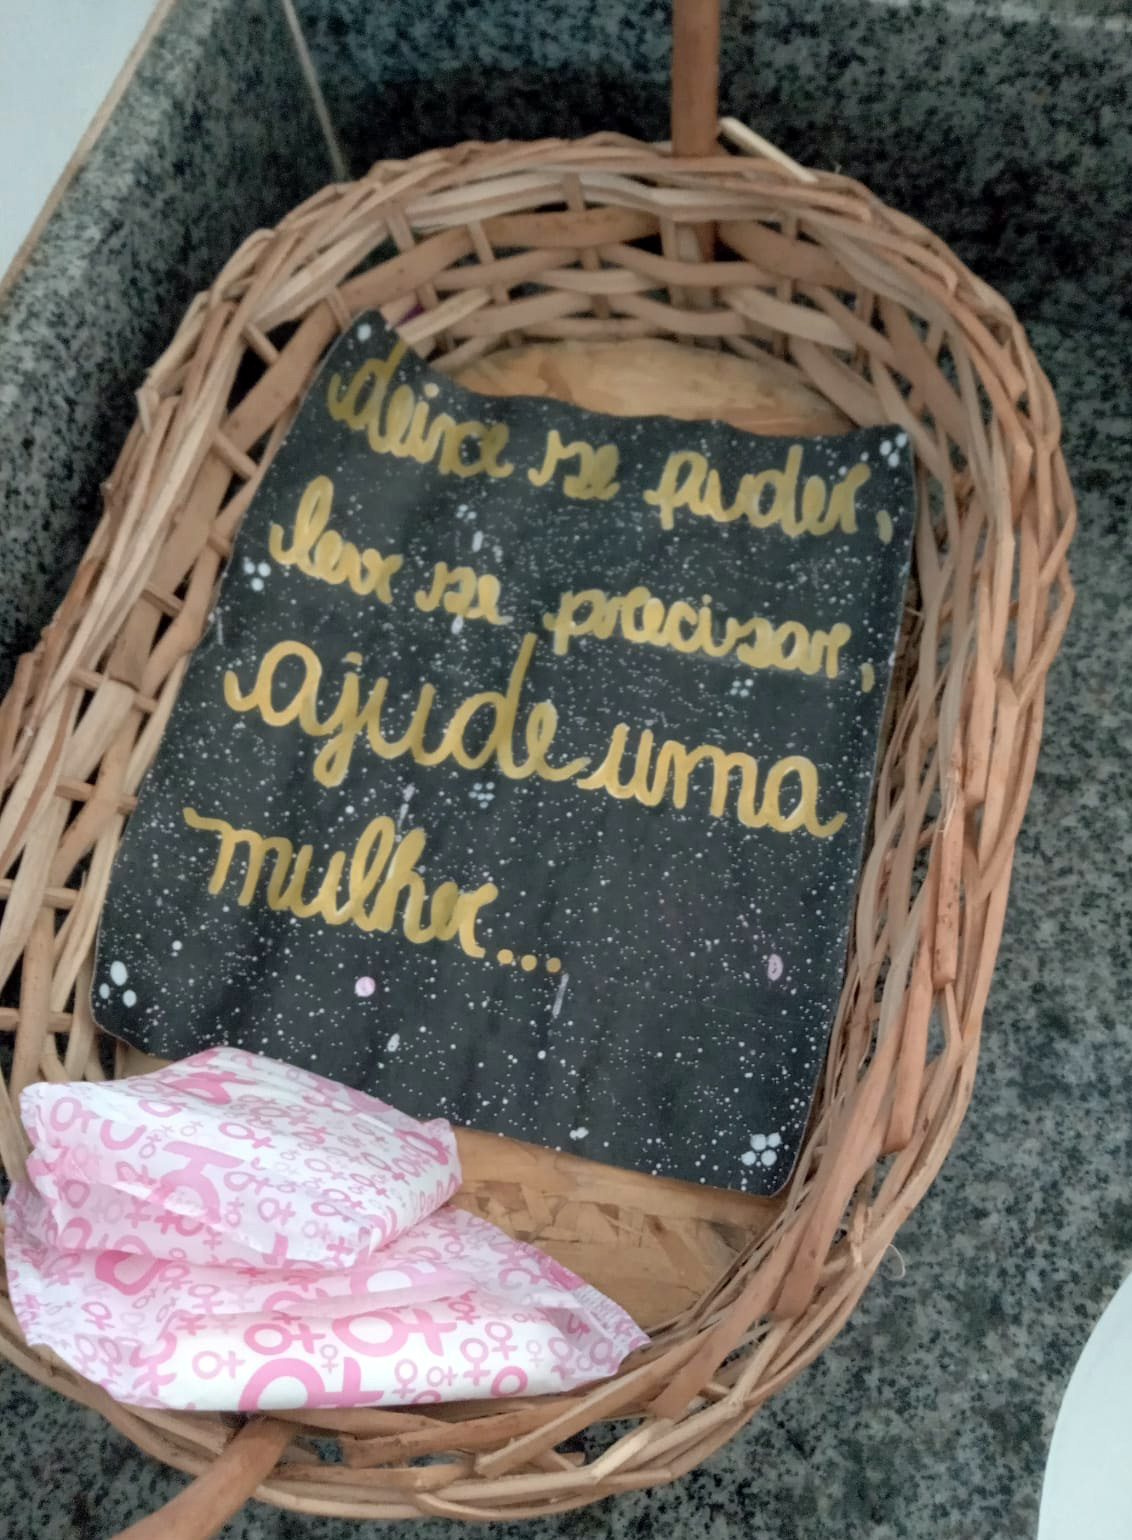 deixe se puder,
leve se precisar,
ajude uma
mulher...